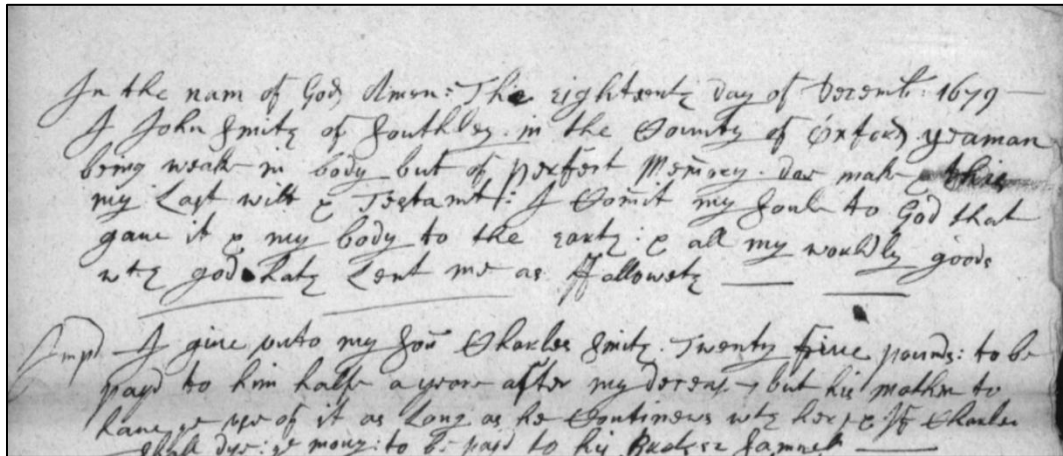 In the nam of God Amen: The eighteenth day of Decemb: 1679
I John Smith of Southley in the County of Oxford yeaman
being weake in body but of perfect Memory. doe make this
my Last will & Testamt: I Comit my Soule to God that
gaue it & my body to the earth: & all my worldly goods
wch god hath Lent me as ffalloweth
Imp I giue vnto my Son Charles Smith Twenty fiue pounds: to be
payd to him halfe a yeare after my deceas, but his mother to
haue ye vse of it as Long as he Continews wth her, & If Charles
shall dye: ye mony: to be payd to his Samuell